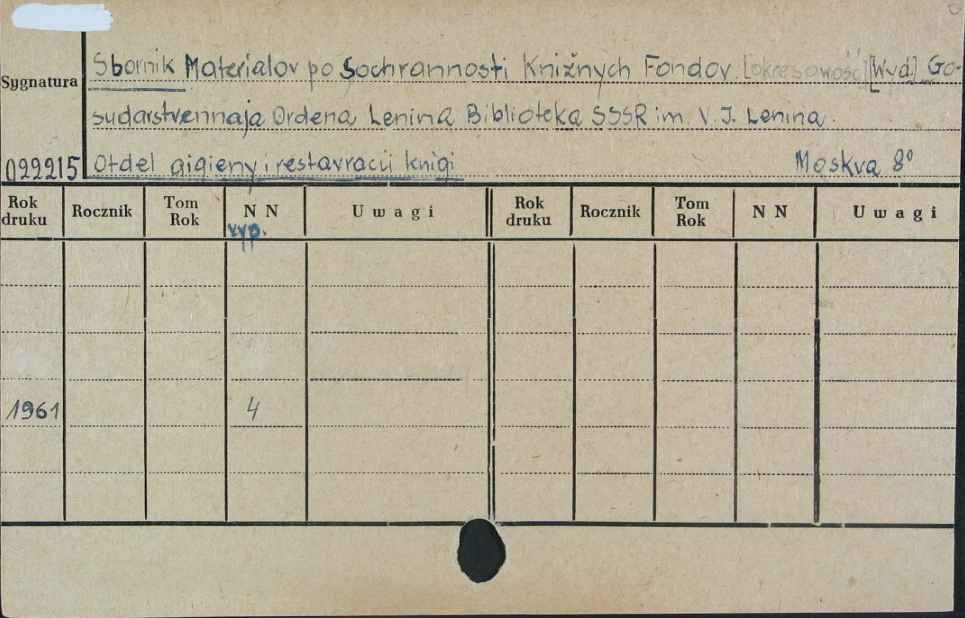 Sbornik Materialov po Sochrannosti Knižnych Fondov [okresowość] [Wyd] Go-
Sygnatura
sudarstvennaja Ordena Lenina Biblioteka SSSR im. V. I. Lenina.
022215 Otdel gigieny i restavracii knigi Moskva 8°
Rok druku Rocznik Tom Rok N N Uwagi Rok druku Rocznik Tom Rok N N Uwagi
vyp.
1961 4